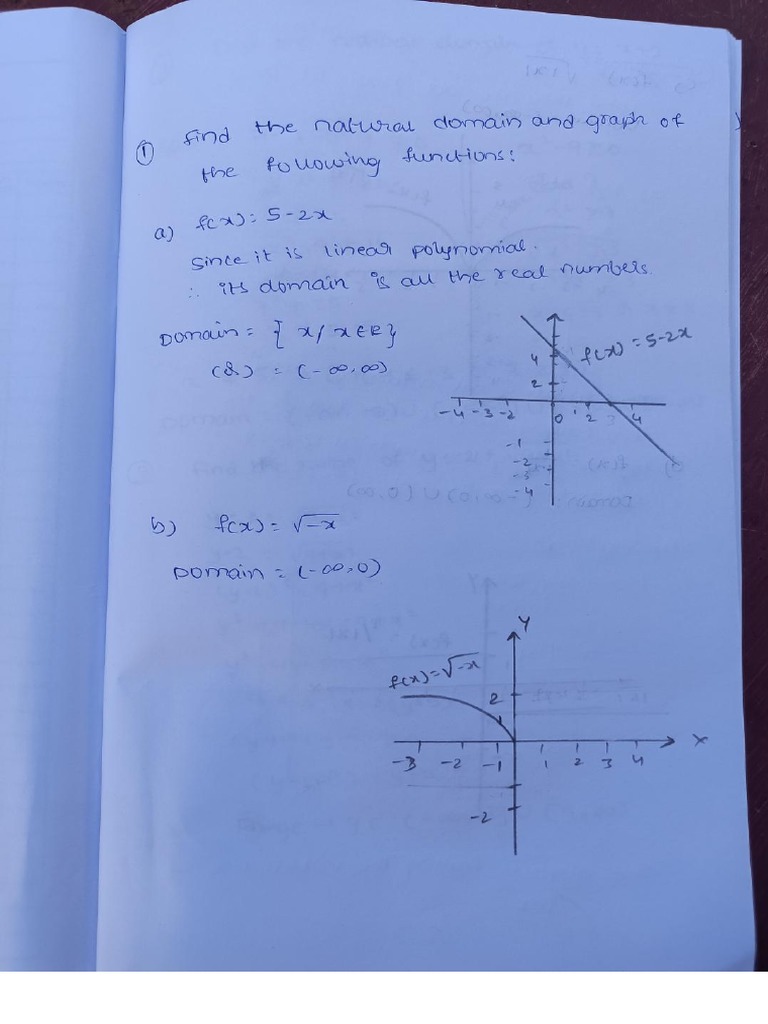 ① find the natural domain and graph of
the following functions:
a) f(x) = 5-2x
Since it is linear polynomial.
∴ its domain is all the real numbers.
Domain = { x/ x∈R}
(&) = (-∞,∞)
f(x) = 5-2x
4
2
-4 -3 -2 0 1 2 3 4
-1
-2
-3
-4
b) f(x) = √-x
Domain = (-∞,0)
Y
f(x)=√-x
2
X
-3 -2 -1 1 2 3 4
-2